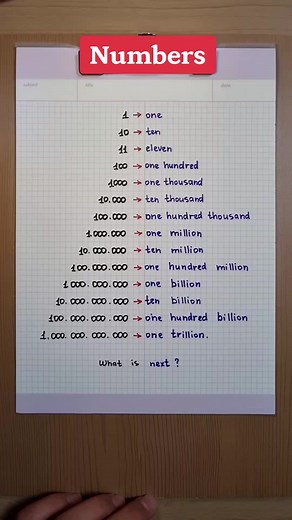 Numbers
subject
title
date
1 → one
10 → ten
11 → eleven
100 → one hundred
1000 → one thousand
10.000 → ten thousand
100.000 → one hundred thousand
1.000.000 → one million
10.000.000 → ten million
100.000.000 → one hundred million
1.000.000.000 → one billion
10.000.000.000 → ten billion
100.000.000.000 → one hundred billion
1.000.000.000.000 → one trillion.
What is next?